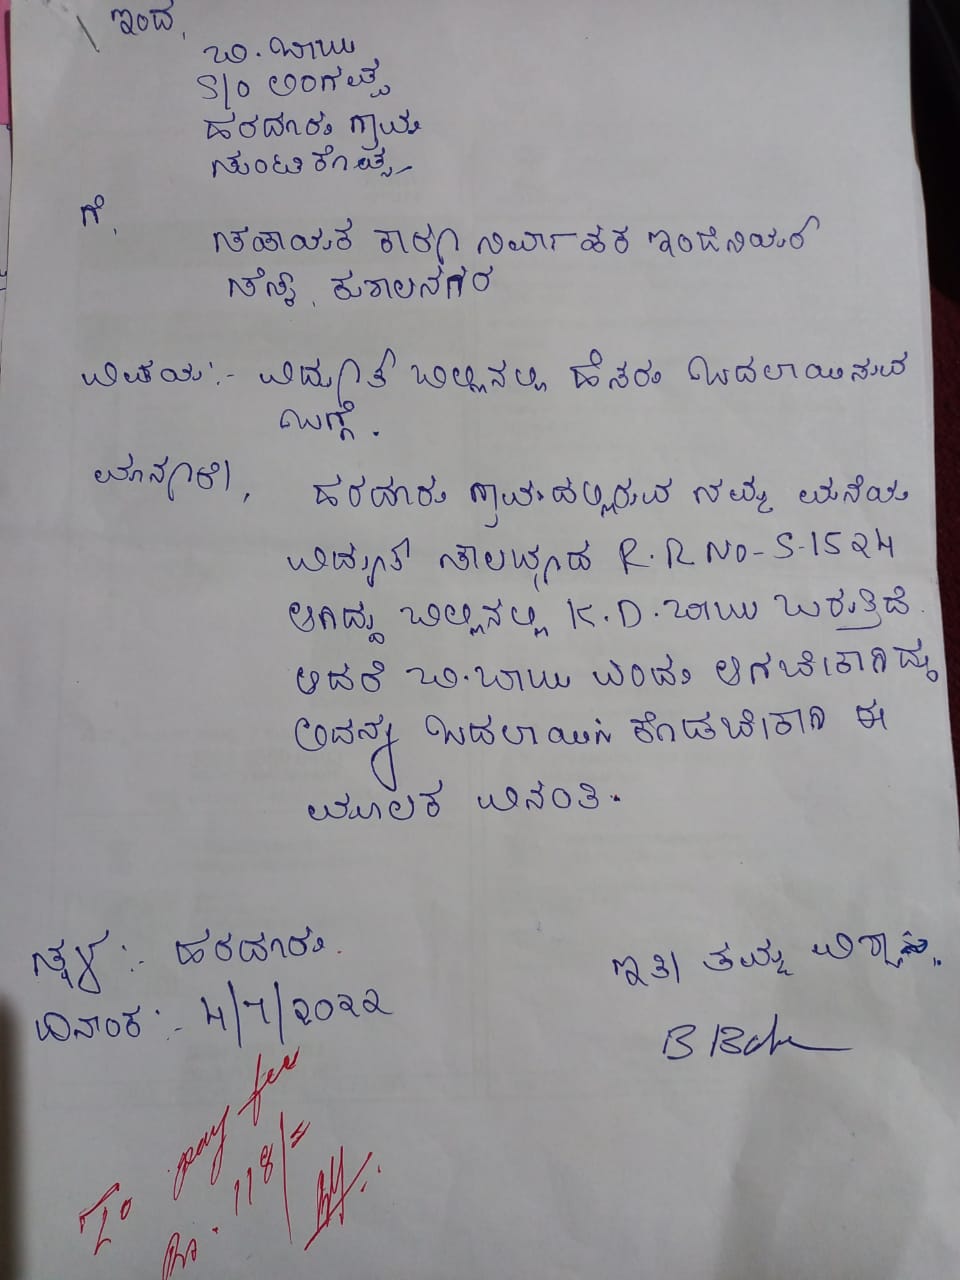 ಇಂದ,
ಬಿ. ಬಾಬು
S/o ಅಂಗಪ್ಪ
ಹರದೂರು ಗ್ರಾಮ
ಸುಂಟಿಕೊಪ್ಪ
ಗೆ,
ಸಹಾಯಕ ಕಾರ್ಯ ನಿರ್ವಾಹಕ ಇಂಜಿನಿಯರ್
ಸೆಸ್ಕ್, ಕುಶಾಲನಗರ
ವಿಷಯ:- ವಿದ್ಯುತ್ ಬಿಲ್ಲಿನಲ್ಲಿ ಹೆಸರು ಬದಲಾಯಿಸುವ
ಬಗ್ಗೆ.
ಮಾನ್ಯರೇ, ಹರದೂರು ಗ್ರಾಮದಲ್ಲಿರುವ ನಮ್ಮ ಮನೆಯ
ವಿದ್ಯುತ್ R.R No-S-1524
ಆಗಿದ್ದು ಬಿಲ್ಲಿನಲ್ಲಿ K.D. ಬಾಬು ಬರುತ್ತಿದೆ.
ಆದರೆ ಬಿ. ಬಾಬು ಎಂದು ಆಗಬೇಕಾಗಿದ್ದು
ಅದನ್ನು ಬದಲಾಯಿಸಿ ಕೊಡಬೇಕಾಗಿ ಈ
ಮೂಲಕ ವಿನಂತಿ.
ಸ್ಥಳ:- ಹರದೂರು.
ಇತಿ ತಮ್ಮ ವಿಶ್ವಾಸಿ,
ದಿನಾಂಕ:- 4/7/2022
To pay fee
Rs. 118/=